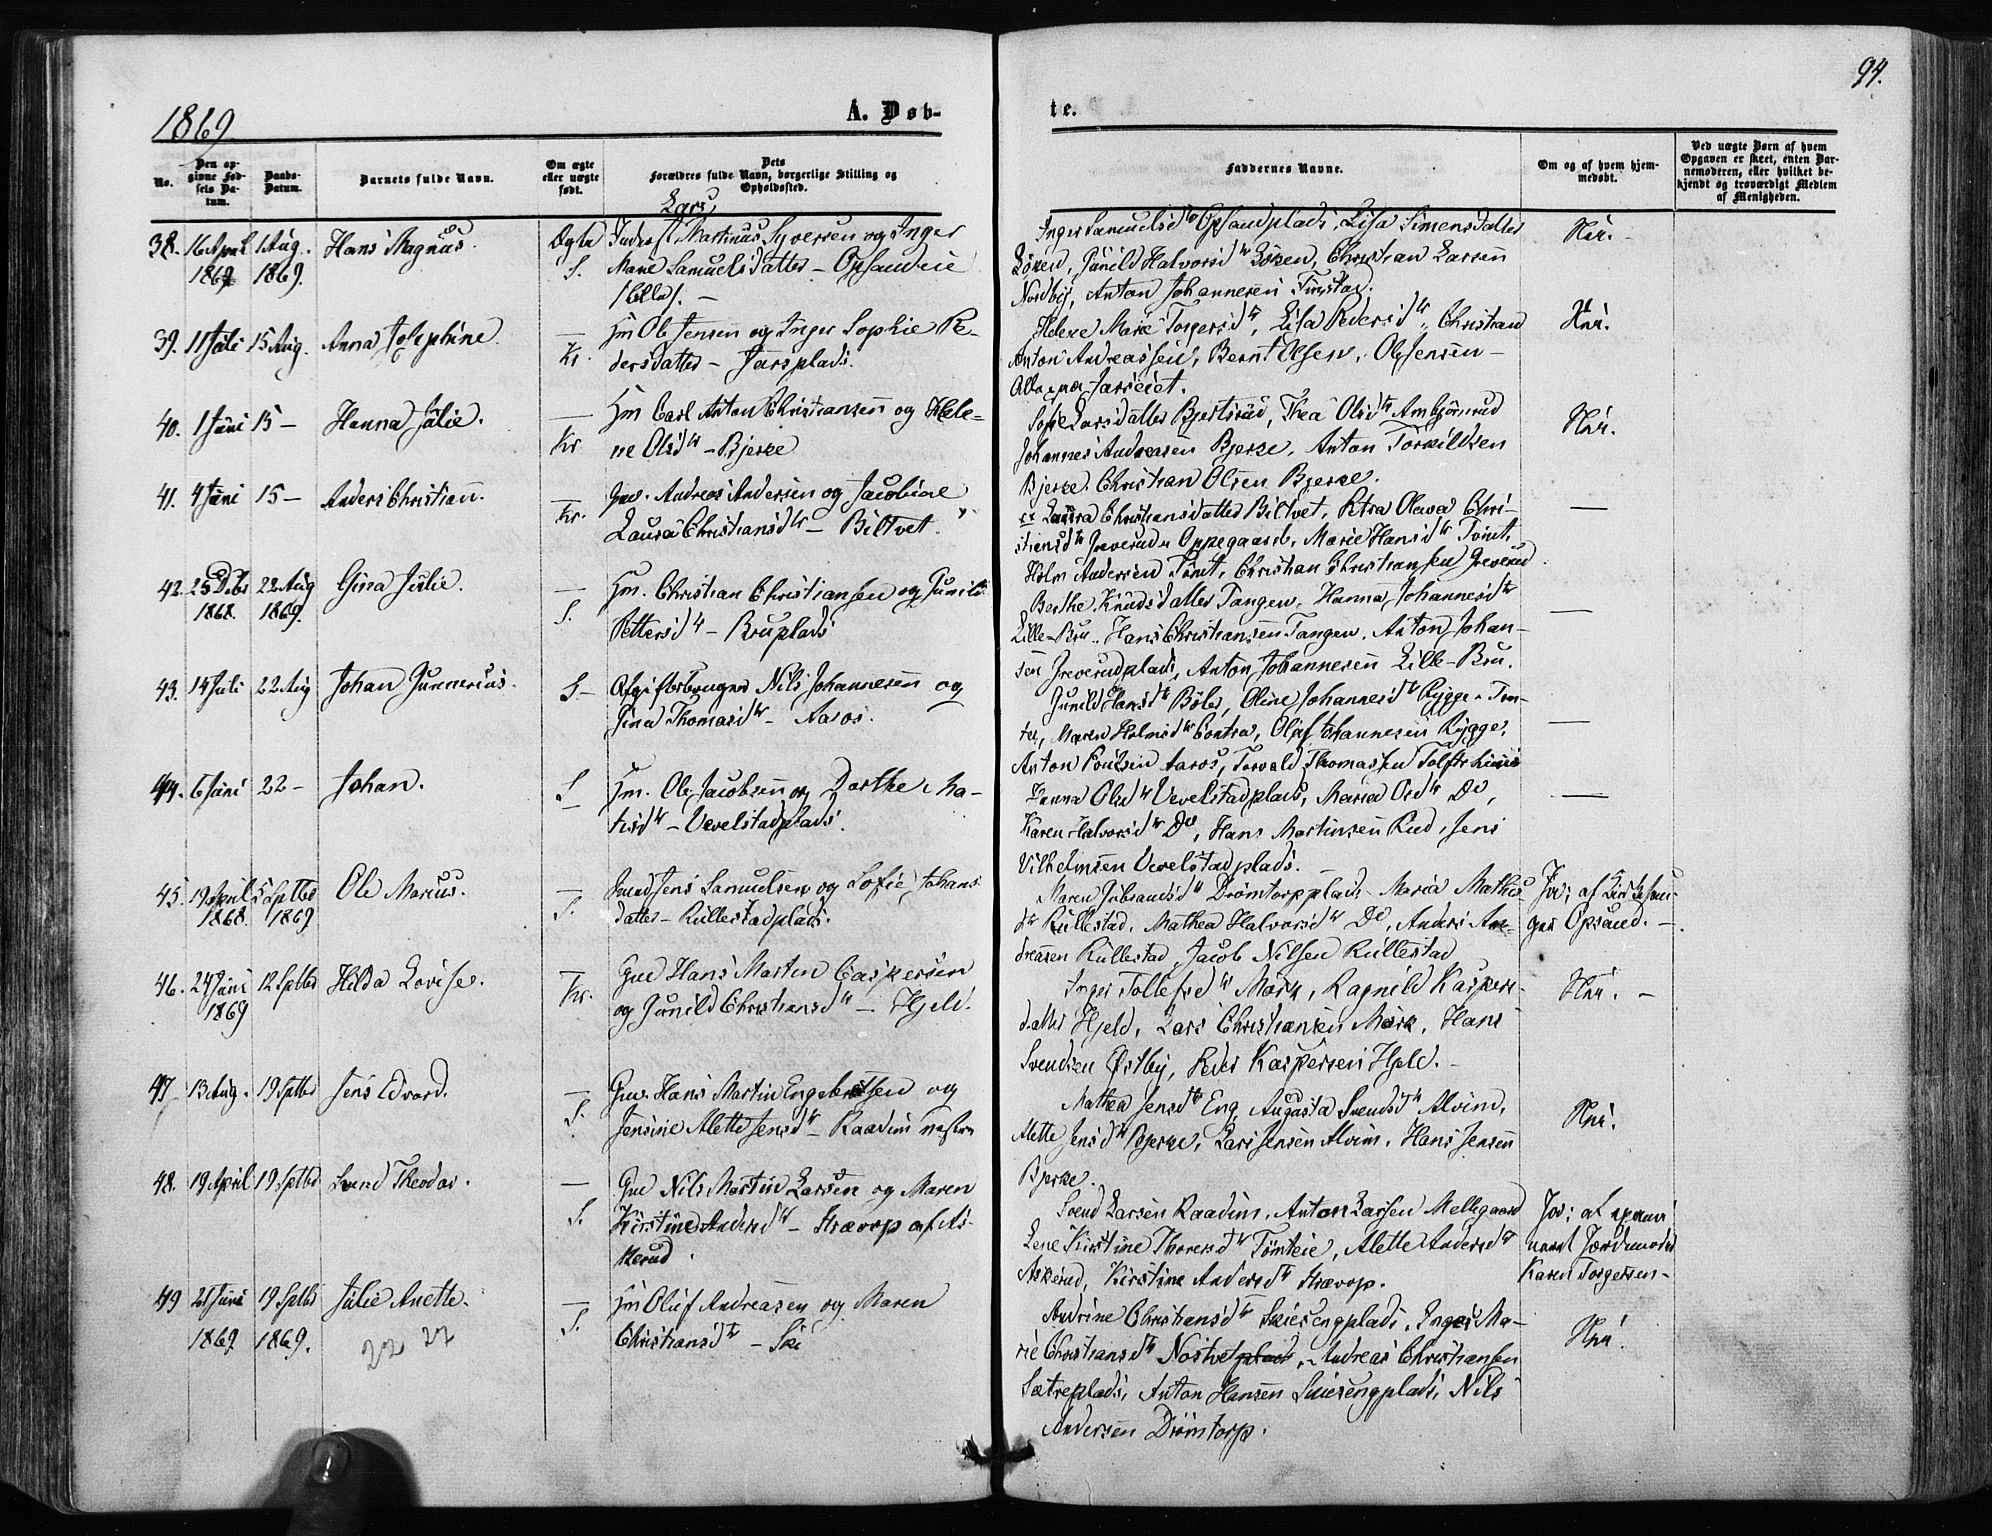 94.
1869
A. Døb-
te.
No.
Den op-
givne Fød-
sels Da-
tum.
Daabs-
Datum.
Barnets fulde Navn.
Om ægte
eller uægte
født.
Dets
Forældres fulde Navn, borgerlige Stilling og
Opholdssted.
Faddernes Navne.
Om og af hvem hjem-
medøbt.
Ved uægte Børn af hvem
Opgaven er skeet, enten Bar-
nemoderen, eller hvilket be-
kjendt og troværdigt Medlem
af Menigheden.
38. 16 April 1 Aug. Hans Magnus. Ægte Inderst Lars Martinus Syversen og Inger
1869 1869. S. Marie Samuelsdatter – Opsandeie
Inger Samuelsdtr Opsandplads, Lisa Simensdatter
Løken, Gunild Halvorsdtr Løken, Christian Larsen
Nordby, Anton Johannesen Finstad.
Nei.
39. 11 Juli 15 Aug. Anna Josephine. — Hm Ole Jensen og Inger Sophie Pe-
Kr. dersdatter – Jarsplads.
Helene Marie Torgersdtr, Lisa Pedersdtr, Christian
Anton Andreassen, Bernt Olsen, Ole Jensen –
Alle paa Jarseiet.
Nei.
40. 1 Juni 15 – Hanna Julie. — Hm Carl Anton Christiansen og Hele-
Kr ne Olsdtr – Bjerke
Sofie Larsdatter Bjertsrud, Thea Olsdtr Ambjørnrud
Johannes Andreasen Bjerke, Anton Torkildsen
Bjerke. Christian Olsen Bjerke.
Nei.
41. 4 Juni 15 – Anders Christian. — Gm. Andreas Andersen og Jacobine
Kr. Laura Christiansdtr – Biltvet.
Laura Christiansdatter Biltvet, Petra Olava Chri-
stiansdtr Greverud Oppegaard, Marie Hansdtr Tømt,
Holm Andersen Tømt, Christian Christiansen Greverud
—
42. 25 Debr 22 Aug Gina Julie. — Hm. Christian Christiansen og Gunild
1868. 1869. S. Pettersdtr – Bruplads
Berthe Knudsdatter Tangen, Hanna Johannesdtr
Lille-Bru, Hans Christiansen Tangen, Anton Johan-
sen Greverudplads, Anton Johannesen Lille-Bru.
—
43. 14 Juli 22 Aug Johan Gunnerius. S – Afgiftsbruger Nils Johannesen og
Gina Thomasdtr – Aaros.
Gunild Hansdtr Bøler, Oline Johannesdtr Rygge Tom-
ter, Maren Holmsdtr Contra, Olaf Johannesen Rygge,
Anton Poulsen Aaros, Torvald Thomassen
—
44. 6 Juni 22 – Johan. S Hm. Ole Jacobsen og Dorthe Ma-
tisdtr – Vevelstadplads.
Hanna Olsdtr Vevelstadplads, Maria Olsdtr Do,
Karen Halvorsdtr Do, Hans Martinsen Rud, Jens
Vilhelmsen Vevelstadplads.
—
45. 19 April 5 Septbr Ole Marius. — Jens Samuelsen og Sofie Johans
1868. 1869 S. datter – Rullestadplads.
Maren Gubrandsdtr Drømtorpplads, Maria Mathis-
dtr Rullestad, Mathea Halvorsdtr Do, Anders An-
dreasen Rullestad, Jacob Nilsen Rullestad
Jo; af Kirkesan-
ger Opsand. –
46. 24 Juni 12 Septbr Hilda Lovise. — Gm Hans Martin Caspersen
1869 Kr. og Gunild Christiansdtr – Hjeld.
Inger Tollefsdtr Mørk, Ragnild Kaspers-
datter Hjeld, Lars Christiansen Mørk, Hans
Svendsen Østby, Peder Kaspersen Hjeld. –
Nei. –
47 13 Aug. 19 Septbr Jens Edvard. — Gm. Hans Martin Engebretsen og
S. Jensine Alette Jensdtr – Raadim
Mathea Jensdtr Eng, Augusta Svendsdtr Alvim,
Alette Jensdtr Bjerke, Lars Jensen Alvim, Hans Jensen
Bjerke.
Nei.
48. 19 April 19 Septbr Svend Theodor. — Gm Nils Martin Larsen og Maren
S. Kirstine Andersdtr – Skrævop af As-
kerud.
Svend Larsen Raadim, Anton Larsen Mellegaard
Lene Kirstine Thoresdtr Tømteie, Alette Andersdtr
Askerud, Kirstine Andersdtr Skrævop.
Jo; af exami-
neret Jordmoder
Karen Torgersen –
49 21 Juni 19 Septbr Julie Anette. — Hm Oluf Andreasen og Maren
1869. 1869. S. Christiansdtr – Ski
22 22
Andrine Christiansdtr Skiesengplads, Inger Ma-
rie Christiansdtr Nostvetplads, Andreas Christiansen
Sætreplads, Anton Hansen Skiesengplads, Nils
Andersen Drømtorp.
Nei.